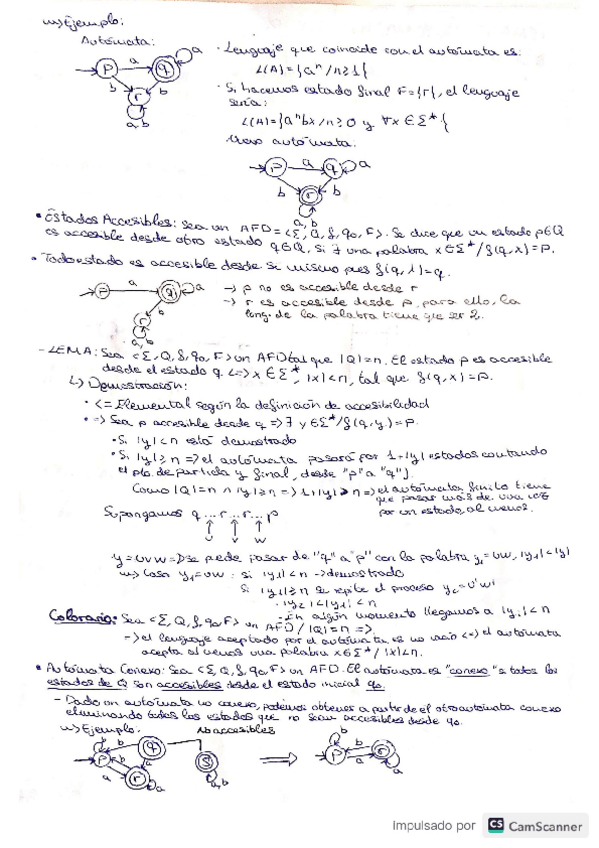 Ejemplo:
Autómata:
a
p a q
b b
r
a,b
· Lenguaje que coincide con el autómata es:
L(A)={aⁿ/n≥1}
· Si hacemos estado final F={r}, el lenguaje
sería:
L(A)={aⁿbx/n≥0 y ∀x∈Σ*}
Nuevo autómata:
p a q a
b b
r
a,b
• Estados Accesibles: Sea un AFD=<Σ, Q, f, q₀, F>. Se dice que un estado p∈Q
es accesible desde otro estado q∈Q, si ∃ una palabra x∈Σ*/f(q,x)=p.
• Todo estado es accesible desde si mismo pues f(q,λ)=q.
p a q a
b b
r
-> p no es accesible desde r
-> r es accesible desde p, para ello, la
long. de la palabra tiene que ser 2.
- LEMA: Sea <Σ, Q, f, q₀, F> un AFD tal que |Q|=n. El estado p es accesible
desde el estado q <=> x∈Σ*, |x|<n, tal que f(q,x)=p.
↳ Demostración:
· <= Elemental según la definición de accesibilidad
· => Sea p accesible desde q => ∃ y∈Σ*/f(q,y)=p
· Si |y|<n está demostrado
· Si |y|≥n => el autómata pasará por 1+|y| estados contando
el pto. de partida y final, desde "p" a "q".
Como |Q|=n ∧ |y|≥n => 1+|y|>n => el autómata finito tiene
que pasar más de una vez
por un estado, al menos.
Supongamos q...r...r...p
U V W
y=uvw => se puede pasar de "q" a "p" con la palabra y₁=uw, |y₁|<|y|
Caso y₁=uw: si |y₁|<n -> demostrado
Si |y₁|≥n se repite el proceso y₂=u'w'
· |y₂|<|y₁|
- En algún momento llegamos a |yᵢ|<n
Colorario: Sea <Σ, Q, f, q₀, F> un AFD/|Q|=n =>
-> el lenguaje aceptado por el autómata es no vacío <=> el autómata
acepta al menos una palabra x∈Σ*/|x|<n.
• Autómata Conexo: Sea <Σ, Q, f, q₀, F> un AFD. El autómata es "conexo" si todos los
estados de Q son accesibles desde el estado inicial q₀.
- Dado un autómata no conexo, podemos obtener a partir de el otro autómata conexo
eliminando todos los estados que no sean accesibles desde q₀.
Ejemplo: No accesibles
b b q
p b a s
a r a a,b
b
p b r
a a
Impulsado por CS CamScanner